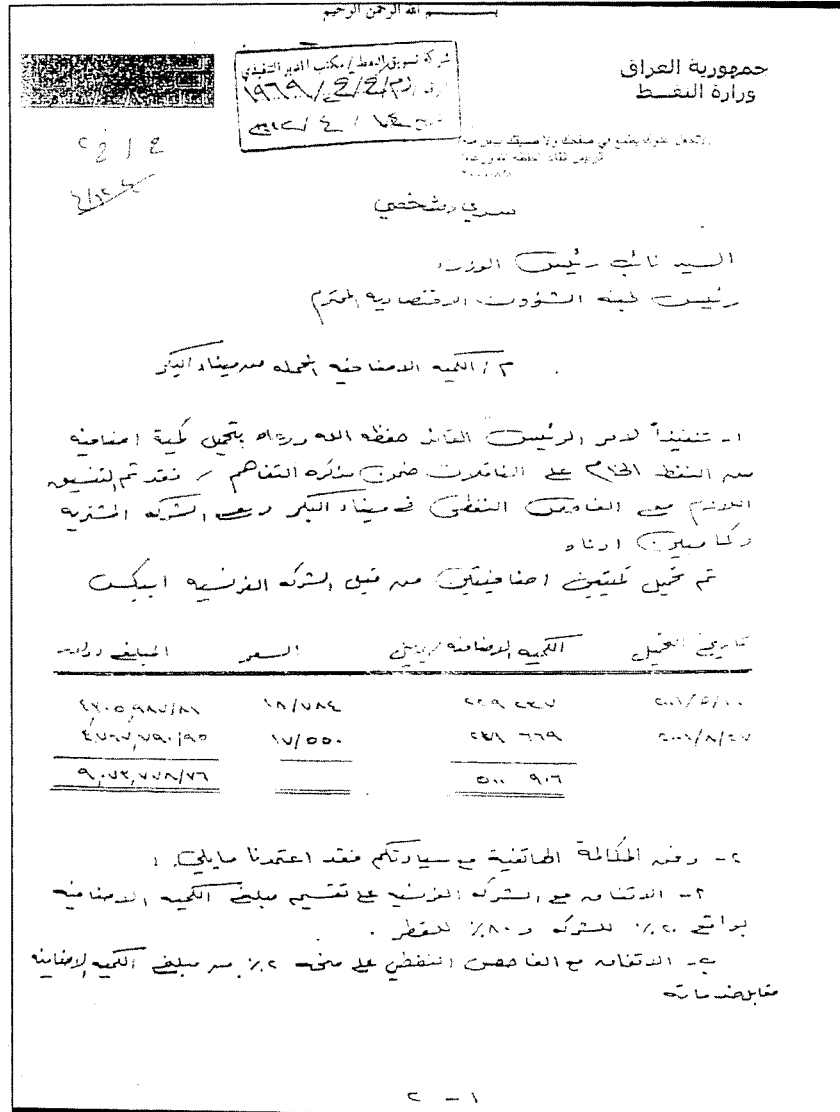 بسم الله الرحمن الرحيم
جمهورية العراق
وزارة النفط
شركة تسويق النفط / مكتب المدير التنفيذي
سري وشخصي
السيد نائب رئيس الوزراء
رئيس لجنة الشؤون الاقتصادية المحترم
م / الكمية الاضافية المحملة من ميناء البكر
١- تنفيذاً لامر الرئيس القائد حفظه الله ورعاه بتحميل كمية اضافية
من النفط الخام على الناقلات ضمن مذكرة التفاهم / فقد تم التنسيق
اللازم مع الفاحص النفطي في ميناء البكر ومع الشركة المشترية
وكما مبين ادناه
تم تحميل كميتين اضافيتين من قبل الشركة الفرنسية ايبكس
تاريخ التحميل الكمية الاضافية / برميل السعر المبلغ دولار
١٨/٧٨٤ ٢٢٩ ٢٣٧
٢٠٠١/٨/٢٧ ٢٧١ ٦٦٩ ١٧/٥٥٠ ٤,٧٦٧,٧٩٠/٩٥
٥٠٠ ٩٠٦ ٩,٠٧٣,٧٧٨/٧٦
٢- وفق المكالمة الهاتفية مع سيادتكم فقد اعتمدنا مايلي :
أ- الاتفاق مع الشركة الفرنسية على تقسيم مبلغ الكمية الاضافية
بواقع ٢٠٪ للشركة و ٨٠٪ للقطر .
ب- الاتفاق مع الفاحص النفطي على منحه ٢٪ من مبلغ الكمية الاضافية
مقابل خدماته
١ - ٢